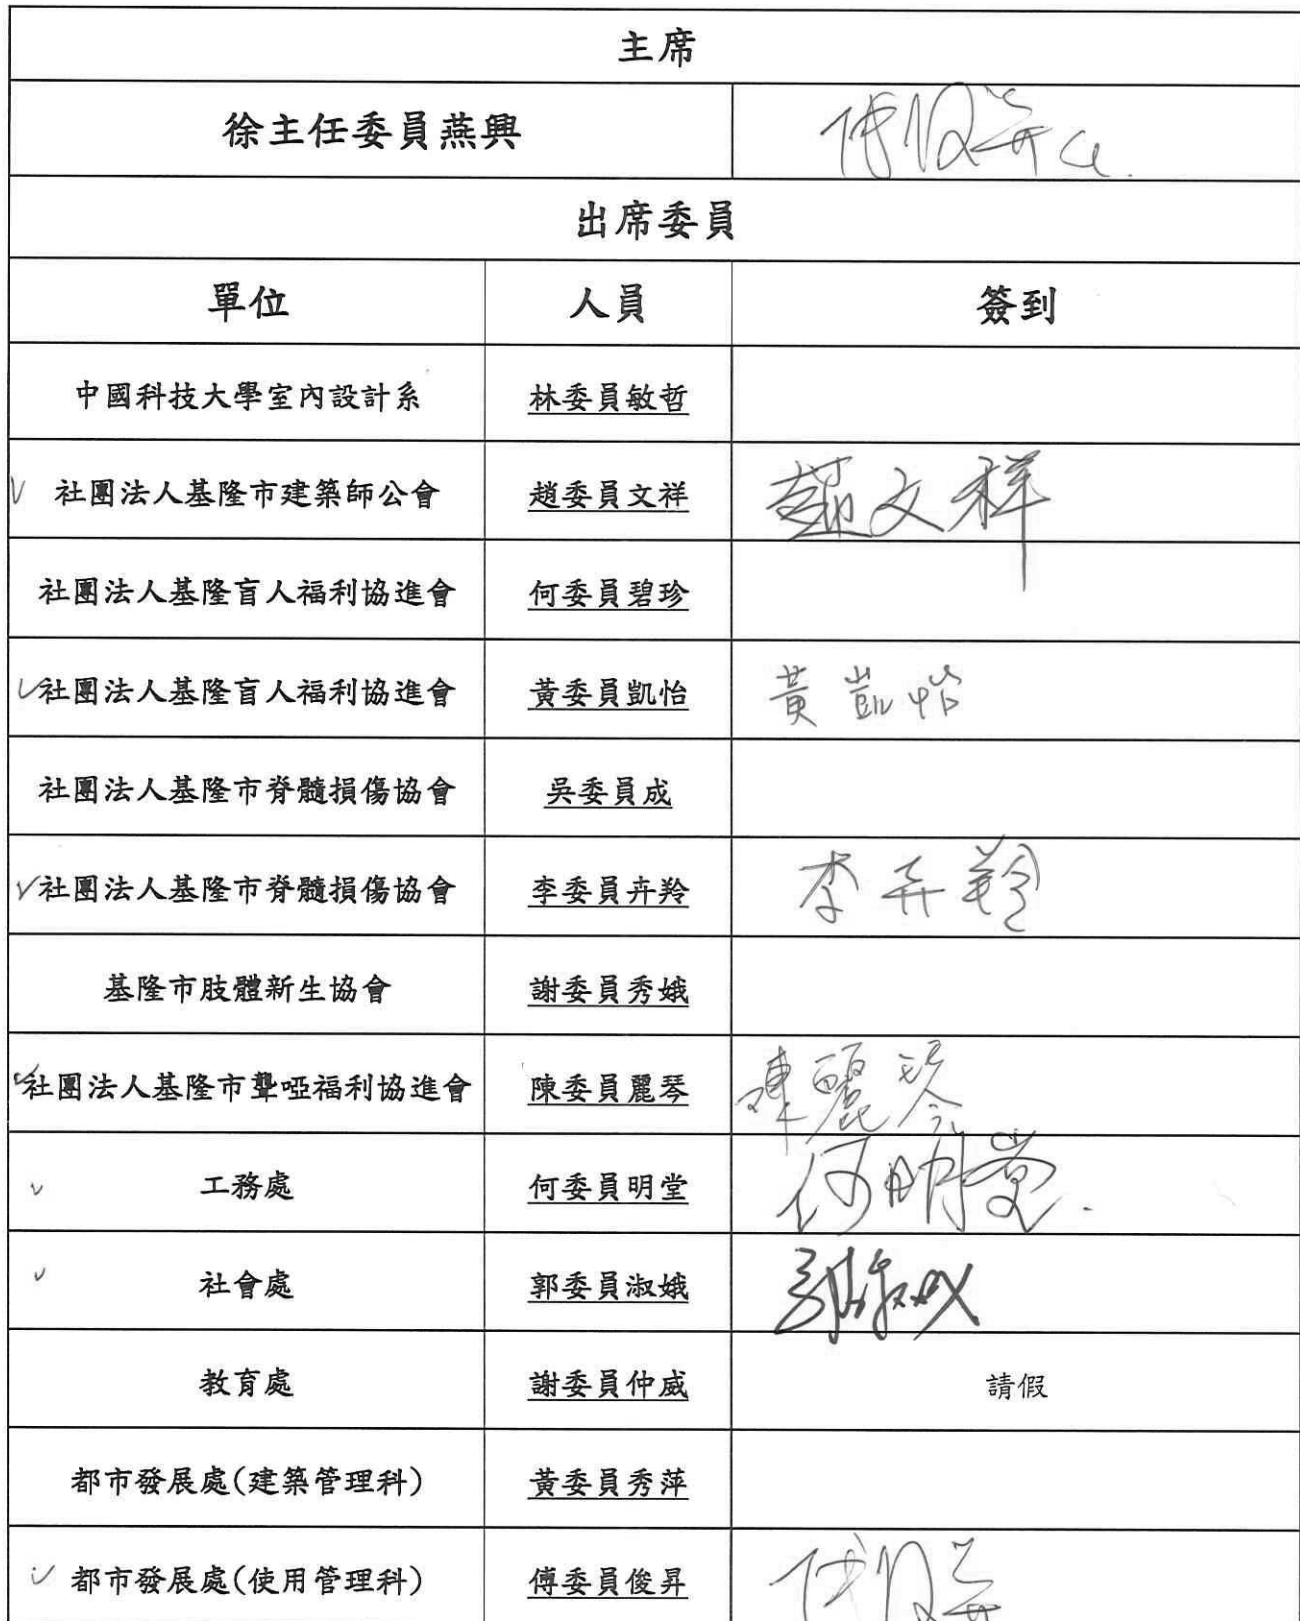 主席
徐主任委員燕興
出席委員
單位 人員 簽到
中國科技大學室內設計系 林委員敏哲
社團法人基隆市建築師公會 趙委員文祥 趙文祥
社團法人基隆盲人福利協進會 何委員碧珍
社團法人基隆盲人福利協進會 黃委員凱怡 黃凱怡
社團法人基隆市脊髓損傷協會 吳委員成
社團法人基隆市脊髓損傷協會 李委員卉羚 李卉羚
基隆市肢體新生協會 謝委員秀娥
社團法人基隆市聾啞福利協進會 陳委員麗琴 陳麗琴
工務處 何委員明堂 何明堂
社會處 郭委員淑娥
教育處 謝委員仲威 請假
都市發展處(建築管理科) 黃委員秀萍
都市發展處(使用管理科) 傅委員俊昇